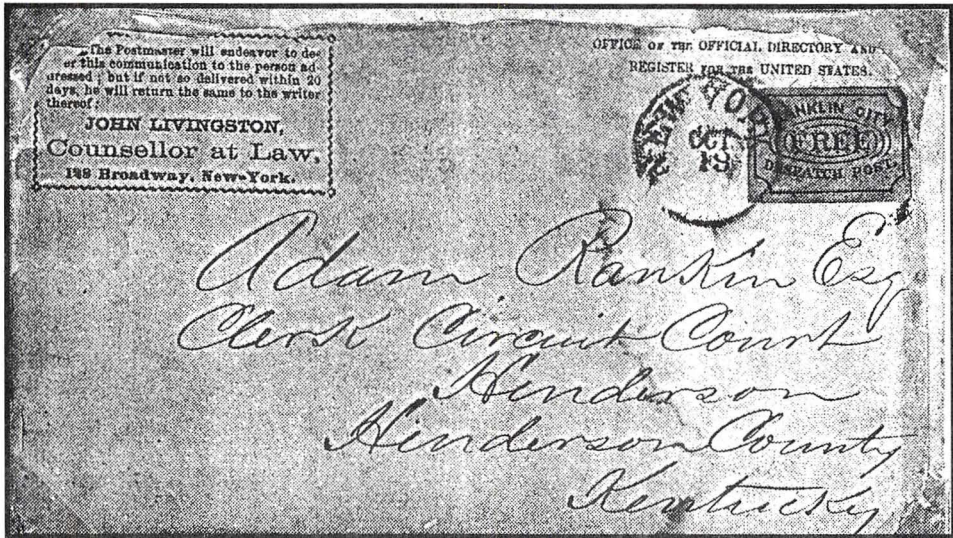 The Postmaster will endeavor to de-
er this communication to the person ad-
dressed; but if not so delivered within 20
days, he will return the same to the writer
thereof:
JOHN LIVINGSTON,
Counsellor at Law,
128 Broadway, New-York.
OFFICE OF THE OFFICIAL DIRECTORY AND
REGISTER FOR THE UNITED STATES.
NEW YORK
OCT
19
ANKLIN CITY
FREE
DESPATCH POST
Adam Rankin Esq
Clerk Circuit Court
Henderson
Henderson County
Kentucky